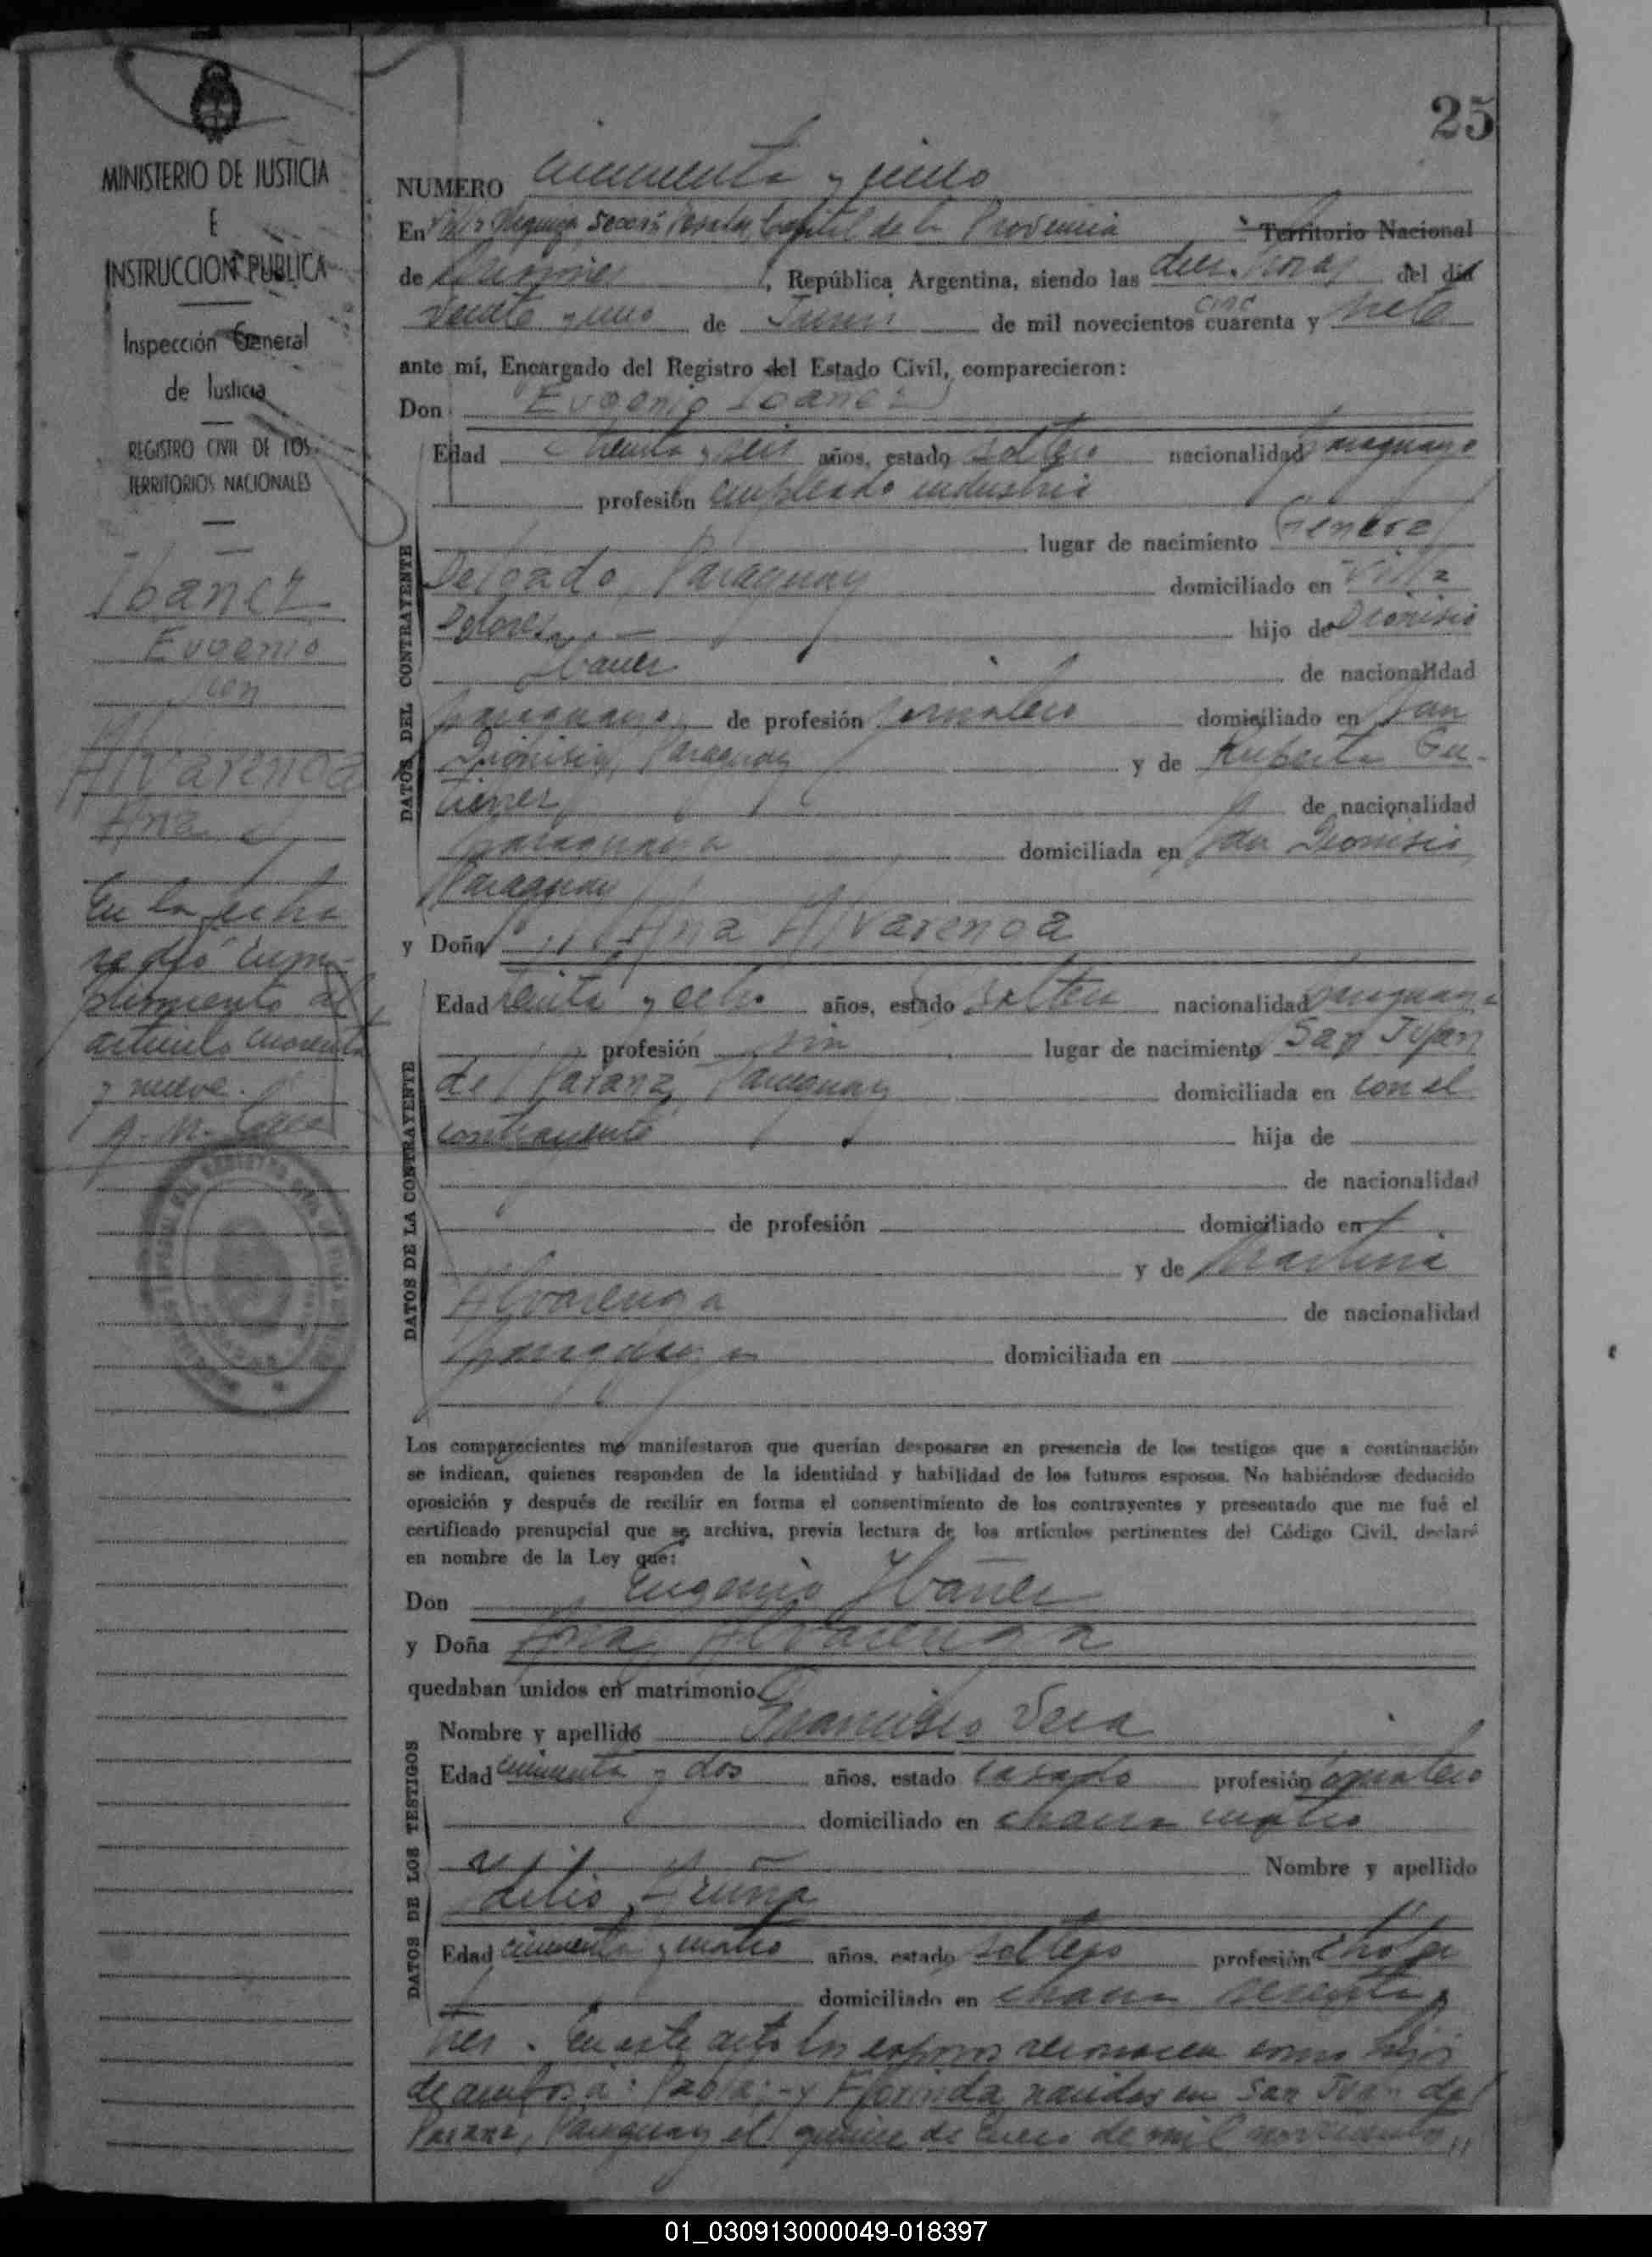 25
MINISTERIO DE JUSTICIA
E
INSTRUCCION PUBLICA
Inspección General
de Justicia
REGISTRO CIVIL DE LOS
TERRITORIOS NACIONALES
Ibañez
Eugenio
con
Alvarenga
Ana
En la fecha
se dió cum-
plimiento al
articulo cuarenta
y nueve.
NUMERO cincuenta y cinco
En Capital de la Provincia Territorio Nacional
de Misiones, República Argentina, siendo las diez horas del día
veinte y uno de Junio de mil novecientos cuarenta y cinc siete
ante mí, Encargado del Registro del Estado Civil, comparecieron:
Don Eugenio Ibañez
DATOS DEL CONTRAYENTE
Edad treinta y seis años, estado soltero nacionalidad paraguayo
profesión empleado industria
lugar de nacimiento General
Delgado, Paraguay domiciliado en Villa
Dolores hijo de Dionisio
Ibañez de nacionalidad
paraguayo de profesión jornalero domiciliado en San
Dionisio, Paraguay y de Ruperta Gu-
tierrez de nacionalidad
paraguaya domiciliada en San Dionisio,
Paraguay
y Doña Ana Alvarenga
DATOS DE LA CONTRAYENTE
Edad treinta y ocho años, estado soltera nacionalidad paraguaya
profesión sin lugar de nacimiento San Juan
del Paraná, Paraguay domiciliada en con el
contrayente hija de
de nacionalidad
de profesión domiciliado en
y de Martina
Alvarenga de nacionalidad
paraguaya domiciliada en
Los comparecientes me manifestaron que querían desposarse en presencia de los testigos que a continuación
se indican, quienes responden de la identidad y habilidad de los futuros esposos. No habiéndose deducido
oposición y después de recibir en forma el consentimiento de los contrayentes y presentado que me fué el
certificado prenupcial que se archiva, previa lectura de los artículos pertinentes del Código Civil, declaré
en nombre de la Ley que:
Don Eugenio Ibañez
y Doña Ana Alvarenga
quedaban unidos en matrimonio.
DATOS DE LOS TESTIGOS
Nombre y apellido Francisco Vera
Edad cincuenta y dos años, estado casado profesión jornalero
domiciliado en chacra cuatro
Nombre y apellido
Edad cincuenta y cuatro años, estado soltero profesión chofer
domiciliado en chacra sesenta y
tres. En este acto los esposos reconocen como hijos
de ambos a: Pabla; y Florinda, nacidas en San Juan del
Paraná, Paraguay el quince de Enero de mil novecientos
01_030913000049-018397